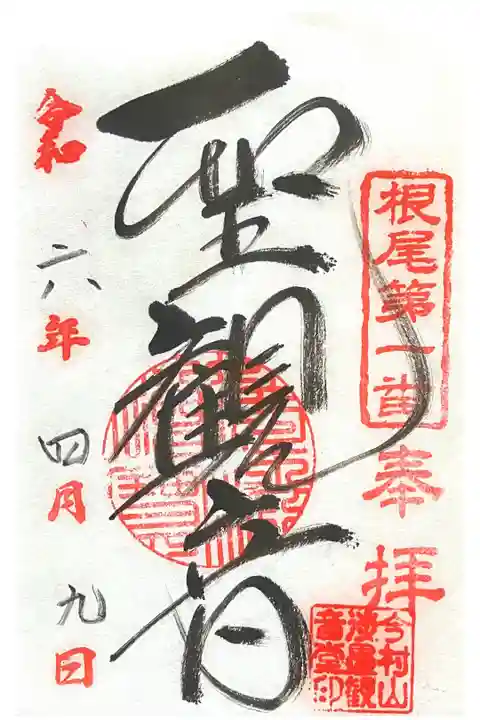 根尾第一番
奉拝
聖觀音
令和六年四月九日
今村山
音堂印